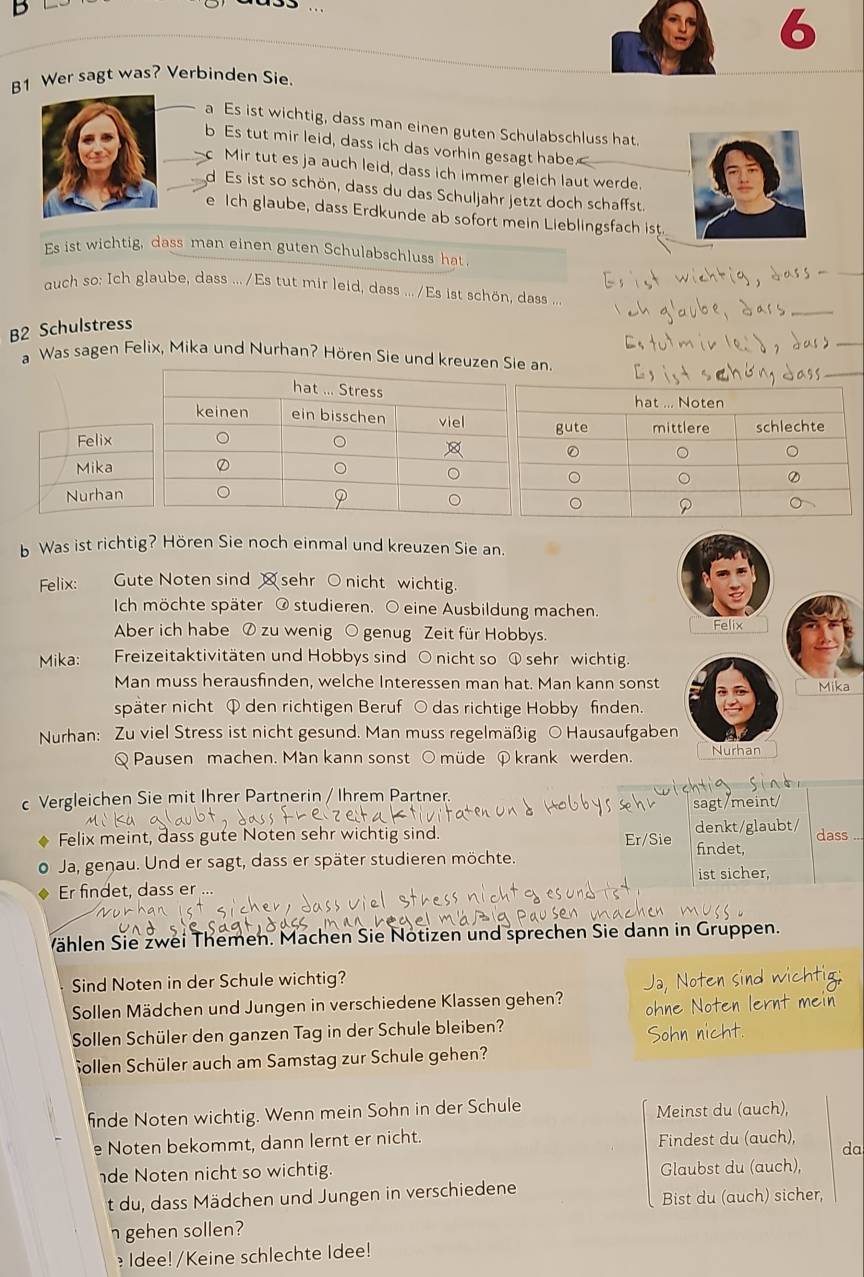 B
6
B1 Wer sagt was? Verbinden Sie.
a Es ist wichtig, dass man einen guten Schulabschluss hat.
b Es tut mir leid, dass ich das vorhin gesagt habe.
c Mir tut es ja auch leid, dass ich immer gleich laut werde.
d Es ist so schön, dass du das Schuljahr jetzt doch schaffst.
e Ich glaube, dass Erdkunde ab sofort mein Lieblingsfach ist.
Es ist wichtig, dass man einen guten Schulabschluss hat.
auch so: Ich glaube, dass ... /Es tut mir leid, dass ... /Es ist schön, dass ...
Es ist wichtig, dass -
Ich glaube, dass
Es tut mir leid, dass
Es ist schöng dass
B2 Schulstress
a Was sagen Felix, Mika und Nurhan? Hören Sie und kreuzen Sie an.
hat ... Stress
hat ... Noten
keinen ein bisschen viel gute mittlere schlechte
Felix
Mika
Nurhan
b Was ist richtig? Hören Sie noch einmal und kreuzen Sie an.
Felix: Gute Noten sind sehr nicht wichtig.
Ich möchte später studieren. eine Ausbildung machen.
Aber ich habe zu wenig genug Zeit für Hobbys.
Mika: Freizeitaktivitäten und Hobbys sind nicht so sehr wichtig.
Man muss herausfinden, welche Interessen man hat. Man kann sonst
später nicht den richtigen Beruf das richtige Hobby finden.
Nurhan: Zu viel Stress ist nicht gesund. Man muss regelmäßig Hausaufgaben
Pausen machen. Man kann sonst müde krank werden.
Felix
Mika
Nurhan
c Vergleichen Sie mit Ihrer Partnerin / Ihrem Partner.
Mika glaubt, dass freizeitaktivitaten und Hobbys sehr wichtig sind,
Felix meint, dass gute Noten sehr wichtig sind.
Ja, genau. Und er sagt, dass er später studieren möchte.
Er findet, dass er ...
Er/Sie
sagt/meint/
denkt/glaubt/
findet,
ist sicher,
dass ...
Nurhan ist sicher, dass viel stress nicht gesund ist,
und sie sagt, dass man regelmäßig pausen machen muss.
ählen Sie zwei Themen. Machen Sie Notizen und sprechen Sie dann in Gruppen.
Sind Noten in der Schule wichtig?
Sollen Mädchen und Jungen in verschiedene Klassen gehen?
Sollen Schüler den ganzen Tag in der Schule bleiben?
Sollen Schüler auch am Samstag zur Schule gehen?
Ja, Noten sind wichtig;
ohne Noten lernt mein
Sohn nicht.
finde Noten wichtig. Wenn mein Sohn in der Schule
e Noten bekommt, dann lernt er nicht.
nde Noten nicht so wichtig.
t du, dass Mädchen und Jungen in verschiedene
n gehen sollen?
e Idee! /Keine schlechte Idee!
Meinst du (auch),
Findest du (auch),
Glaubst du (auch),
Bist du (auch) sicher,
da